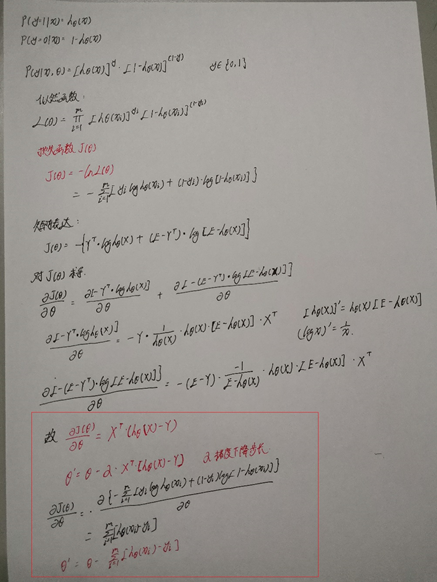 P(y=1|x)= hθ(x)
P(y=0|x)= 1-hθ(x)
P(y|x,θ) = [hθ(x)]^y · [1-hθ(x)]^(1-y) y∈{0,1}
似然函数:
L(θ) = ∏_{i=1}^{m} [hθ(xi)]^yi [1-hθ(xi)]^(1-yi)
损失函数 J(θ)
J(θ) = -lnL(θ)
= -∑_{i=1}^{m}[yi loghθ(xi) + (1-yi)·log[1-hθ(xi)]}
矩阵表达:
J(θ) = -{Y^T·loghθ(X) + (E-Y^T)·log[E-hθ(X)]}
对 J(θ) 求导
∂J(θ)/∂θ = ∂[-Y^T·loghθ(X)]/∂θ + ∂[-(E-Y^T)·log[E-hθ(X)]]/∂θ
∂[-Y^T·loghθ(X)]/∂θ = -Y·1/hθ(X)·hθ(X)·[E-hθ(X)]·X^T [hθ(x)]'=hθ(x)[E-hθ(x)]
(logx)'=1/x.
∂[-(E-Y^T)·log[E-hθ(X)]}/∂θ = -(E-Y)·-1/E-hθ(X)·hθ(X)·[E-hθ(X)]·X^T
故 ∂J(θ)/∂θ = X^T·(hθ(X)-Y)
θ' = θ-α·X^T[hθ(X)-Y] α 梯度下降步长
∂J(θ)/∂θ = ∂{-∑_{i=1}^{m}[yi loghθ(xi)+(1-yi)log[1-hθ(xi)]}/∂θ
= ∑_{i=1}^{m}[hθ(xi)-yi]
θ' = θ-∑_{i=1}^{m}[hθ(xi)-yi]